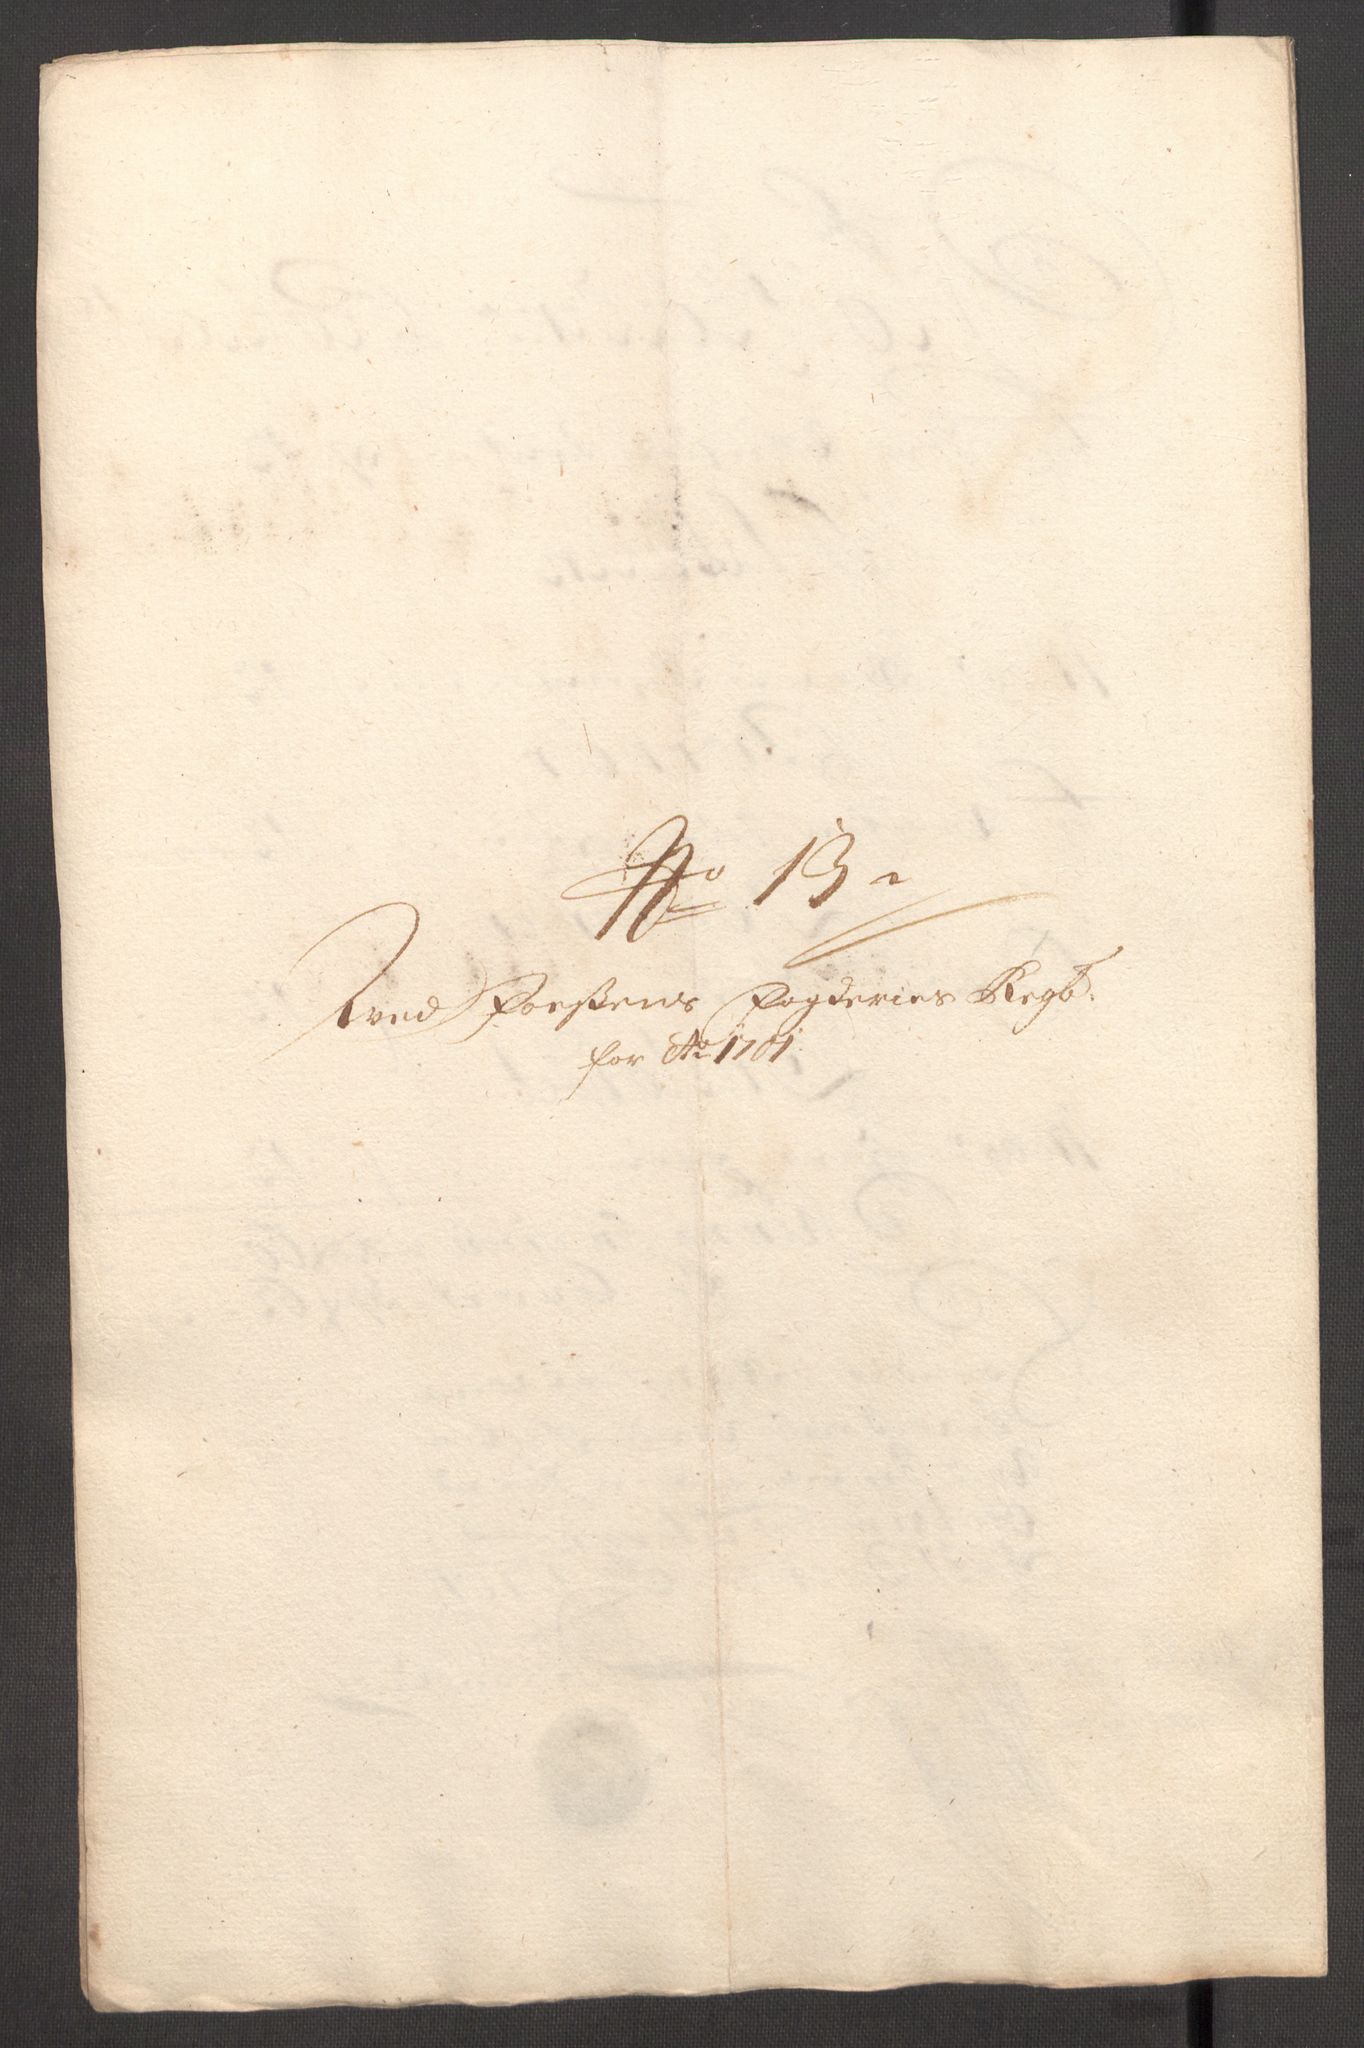 No 13.
ved Foessens Fogderies Regb.
for Ao 1701